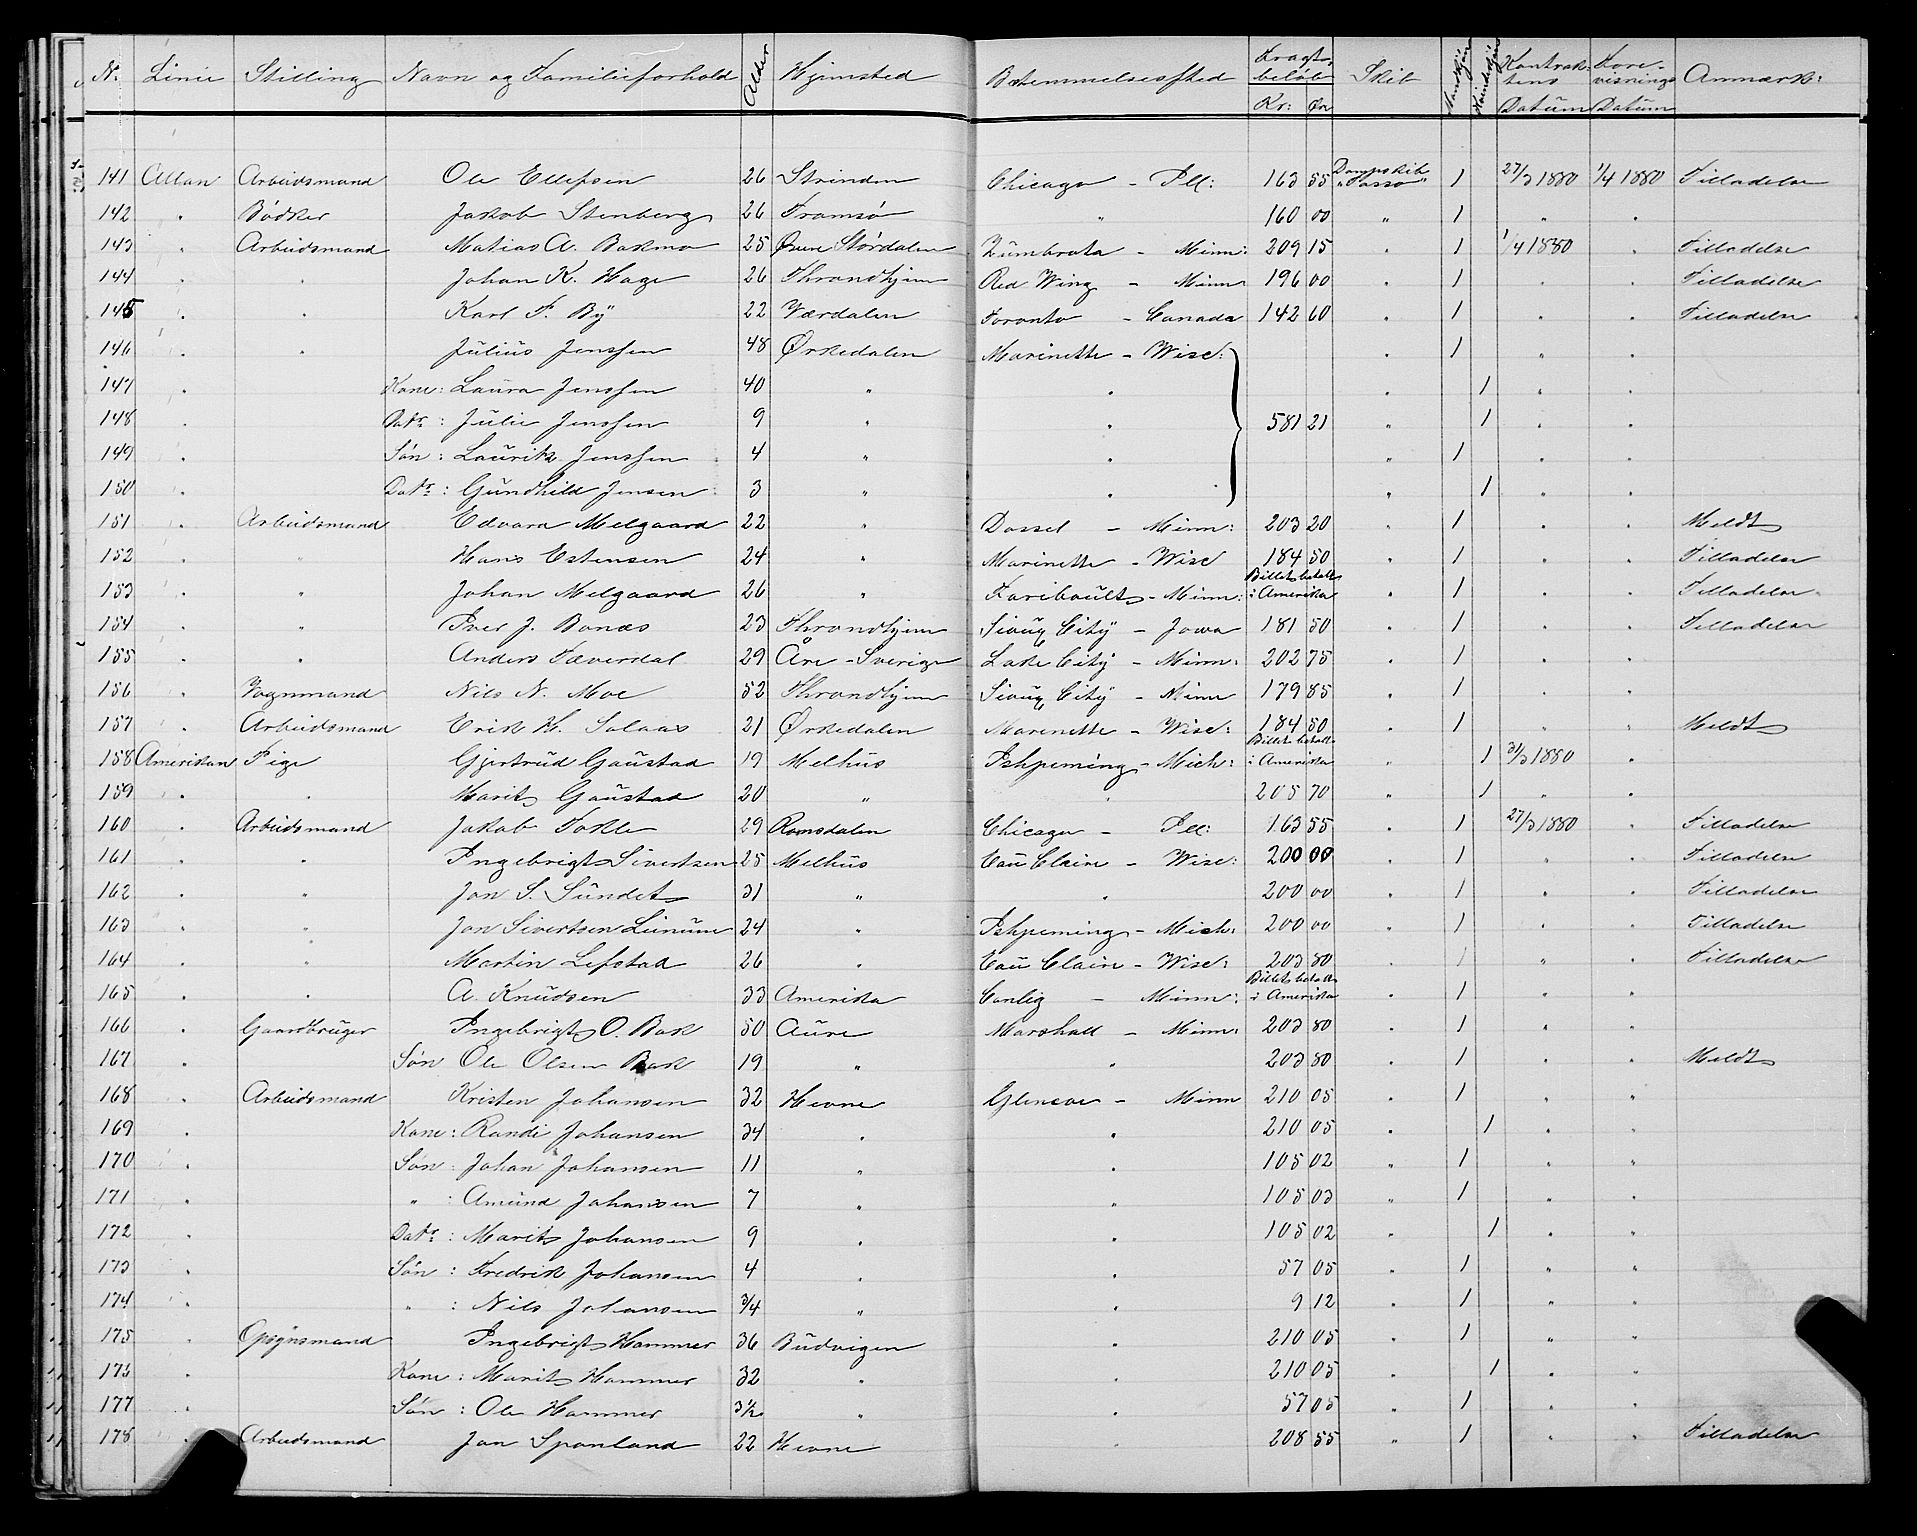 No. Linie Stilling Navn og Familieforhold Alder Hjemsted Bestemmelsessted Fragtbeløb Kr: Øre Skib Mandkjön Kvindekjön Kontraktens Datum Forevisnings Datum Anmærk:
141 Allan Arbeidsmand Ole Ellefsen 26 Strinden Chicago - Ill: 163 55 Dampskib "Tasso" 1 27/3 1880 1/4 1880 Tilladelse
142 " Bödker Jakob Stenberg 26 Tromsö " 160 00 " 1 " "
143 " Arbeidsmand Matias A. Bakmo 25 Øvre Stördalen Zumbrota - Minn: 209 15 " 1 1/4 1880 " Tilladelse
144 " " Johan K. Hage 26 Throndhjem Red Wing - Minn 196 00 " 1 " " Tilladelse
145 " " Karl F. By 22 Værdalen Toronto - Canada 142 60 " 1 " " Tilladelse
146 " " Julius Jenssen 48 Ørkedalen Marinette - Wisc: " 1 " "
147 " Kone: Laura Jenssen 40 " " " 1 " "
148 " Datr: Julie Jenssen 9 " " 581 21 " 1 " "
149 " Sön: Laurits Jenssen 4 " " " 1 " "
150 " Datr: Gundhild Jensen 3 " " " 1 " "
151 " Arbeidsmand Edvard Melgaard 22 " Dassel - Minn: 203 20 " 1 " " Meldt
152 " " Hans Estensen 24 " Marinette - Wisc 184 50 " 1 " " Tilladelse
153 " " Johan Melgaard 26 " Faribault - Minn: Billet betalt i Amerika " 1 " " Tilladelse
154 " " Iver J. Bonæs 23 Throndhjem Sioux City - Jowa 181 50 " 1 " " Tilladelse
155 " " Anders Tæverdal 29 Åre - Sverige Lake City - Minn: 202 75 " 1 " "
156 " Vognmand Nils N. Moe 52 Throndhjem Sioux City - Minn 179 85 " 1 " "
157 " Arbeidsmand Erik H. Solaas 21 Ørkedalen Marenette - Wisc: 184 50 " 1 " " Meldt
158 Amerikan Pige Gjertrud Gaustad 19 Melhus Ishpeming - Mich: Billet betalt i Amerika " 1 31/3 1880 "
159 " " Marit Gaustad 20 " " 205 70 " 1 " "
160 " Arbeidsmand Jakob Tokle 29 Romsdalen Chicago - Ill: 163 55 " 1 27/3 1880 " Tilladelse
161 " " Ingebrigt Sivertsen 25 Melhus Eau Claire - Wisc: 200 00 " 1 " " Tilladelse
162 " " Jon S. Sundet 31 " " 200 00 " 1 " " Tilladelse
163 " " Jon Sivertsen 24 " Ishpeming - Mich: 200 00 " 1 " " Tilladelse
164 " " Martin Lefstad 26 " Eau Claire - Wisc: 203 80 " 1 " " Tilladelse
165 " " A. Knudsen 33 Amerika - Minn: Billet betalt i Amerika " 1 " "
166 " Gaardbruger Ingebrigt O. Bak 50 Aure Marshall - Minn: 203 80 " 1 " "
167 " Sön Ole Olsen Bak 19 " " 203 80 " 1 " " Meldt
168 " Arbeidsmand Kristen Johansen 32 Hevne Glencoe - Minn 210 05 " 1 " "
169 " Kone: Randi Johansen 34 " " 210 05 " 1 " "
170 " Sön: Johan Johansen 11 " " 105 02 " 1 " "
171 " " : Amund Johansen 7 " " 105 03 " 1 " "
172 " Datr: Marit Johansen 9 " " 105 02 " 1 " "
173 " Sön: Fredrik Johansen 4 " " 57 05 " 1 " "
174 " " : Nils Johansen 3/4 " " 9 12 " 1 " "
175 " Opsynsmand Ingebrigt Hammer 36 Budvigen " 210 05 " 1 " "
175 " Kone: Marit Hammer 32 " " 210 05 " 1 " "
177 " Sön: Ole Hammer 3½ " " 57 05 " 1 " "
178 " Arbeidsmand Jon Spanland 22 Hevne " 208 55 " 1 " " Tilladelse